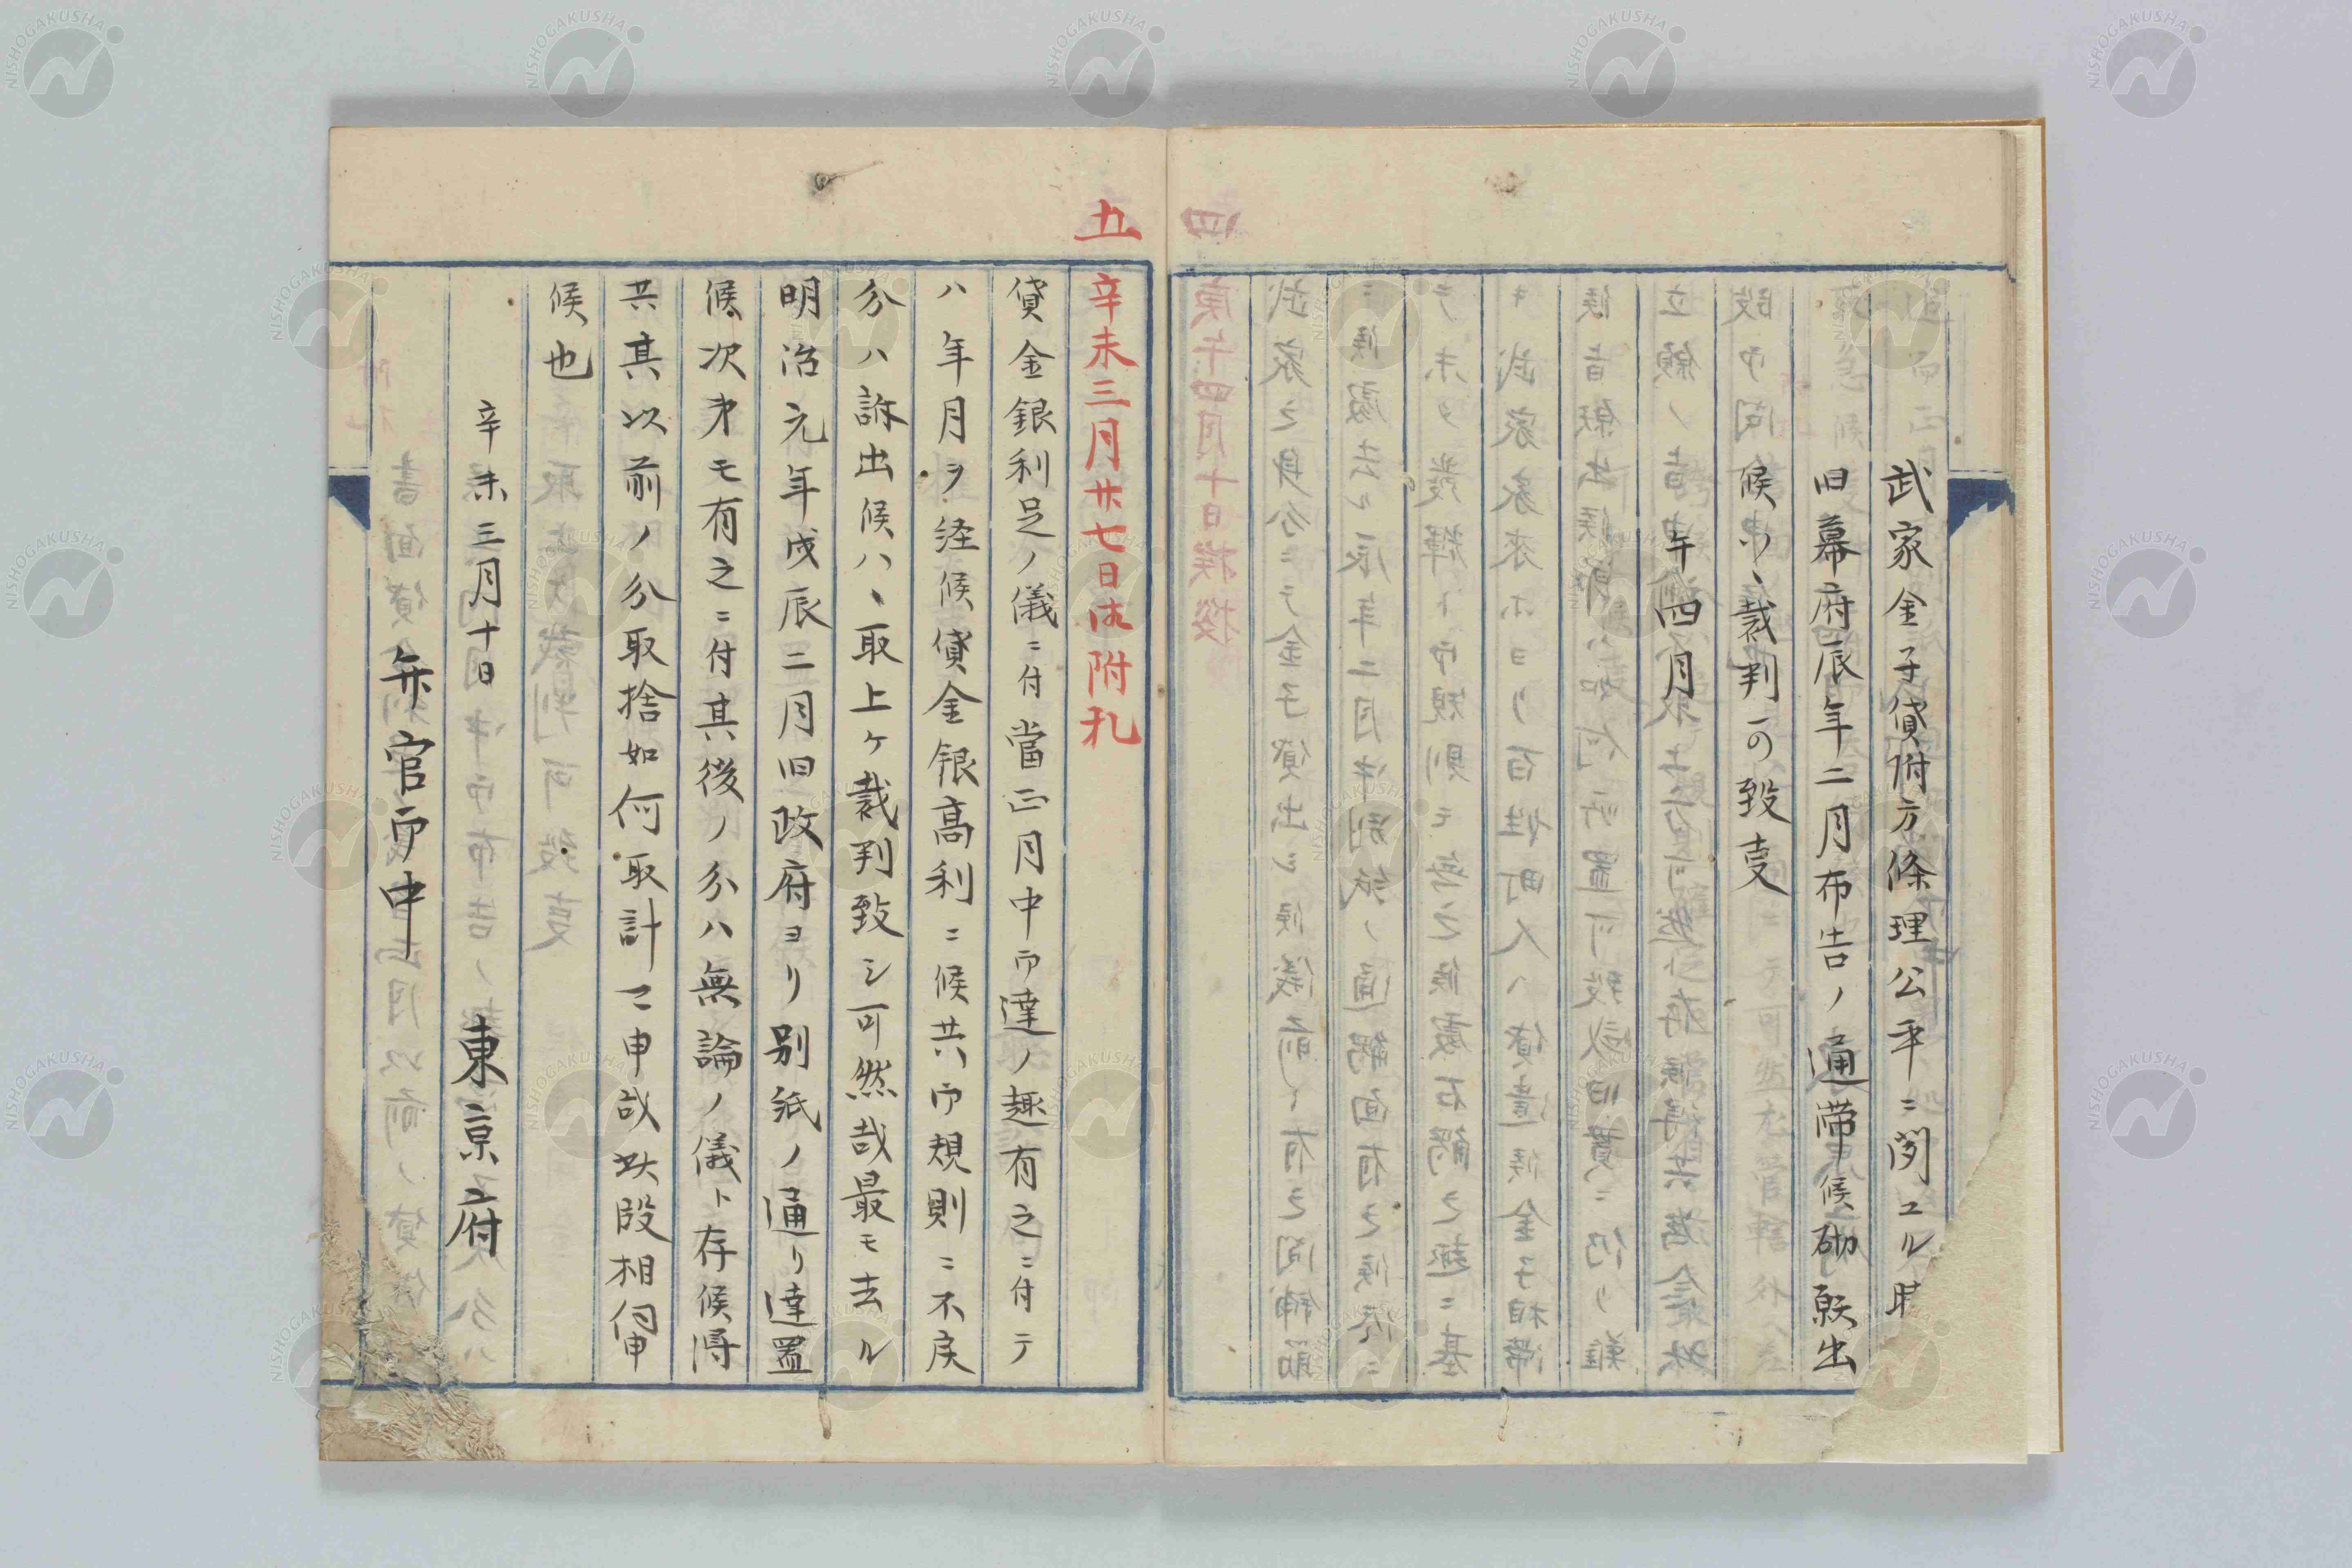 武家金子貸附方條理公平ニ関ユル
旧幕府辰年二月布告ノ通帶候砌願出
候ハヽ裁判可致叓
午四月
五
辛未三月廿七日御附札
貸金銀利足ノ儀ニ付當正月中御達ノ趣有之ニ付テ
ハ年月ヲ経候貸金銀高利ニ候共御規則ニ不戻
分ハ訴出候ハヽ取上ケ裁判致シ可然哉最モ去ル
明治元年戊辰二月旧政府ヨリ別紙ノ通リ達置
候次才モ有之ニ付其後ノ分ハ無論ノ儀ト存候得
共其以前ノ分取捨如何取計可申哉此段相伺申
候也
辛未三月十日
東京府
弁官御中
NISHOGAKUSHA